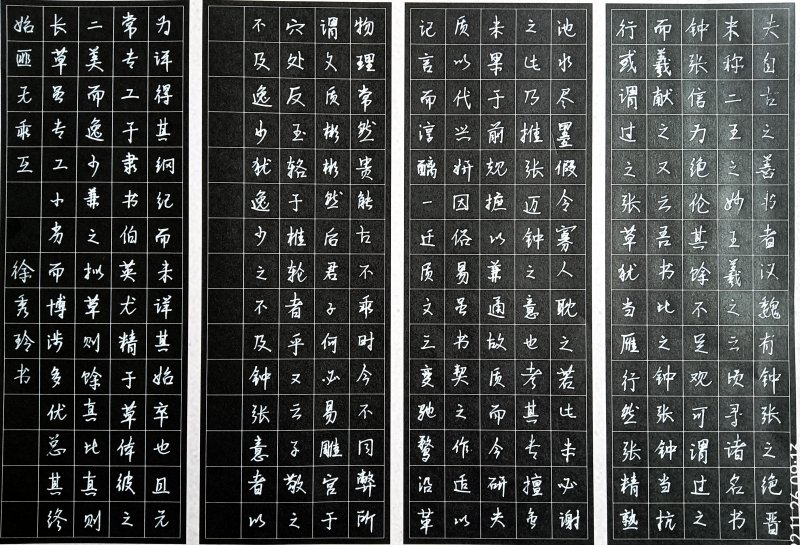 夫自古之善书者汉魏有钟张之绝晋
末称二王之妙王羲之云顷寻诸名书
钟张信为绝伦其馀不足观可谓过之
而羲献之又云吾书比之钟张钟当抗
行或谓过之张草犹当雁行然张精熟
池水尽墨假令寡人耽之若此未必谢
之此乃推张迈钟之意也考其专擅虽
未果于前规摭以兼通故质而今研夫
质以代兴妍因俗易虽书契之作适以
记言而淳醨一迁质文三变驰骛沿革
物理常然贵能古不乖时今不同弊所
谓文质彬彬然后君子何必易雕宫于
穴处反玉辂于椎轮者乎又云子敬之
不及逸少犹逸少之不及钟张意者以
为详得其纲纪而未详其始卒也且元
常专工于隶书伯英尤精于草体彼之
二美而逸少兼之拟草则馀真比真则
长草虽专工小劣而博涉多优总其终
始匪无乖互 徐秀玲书